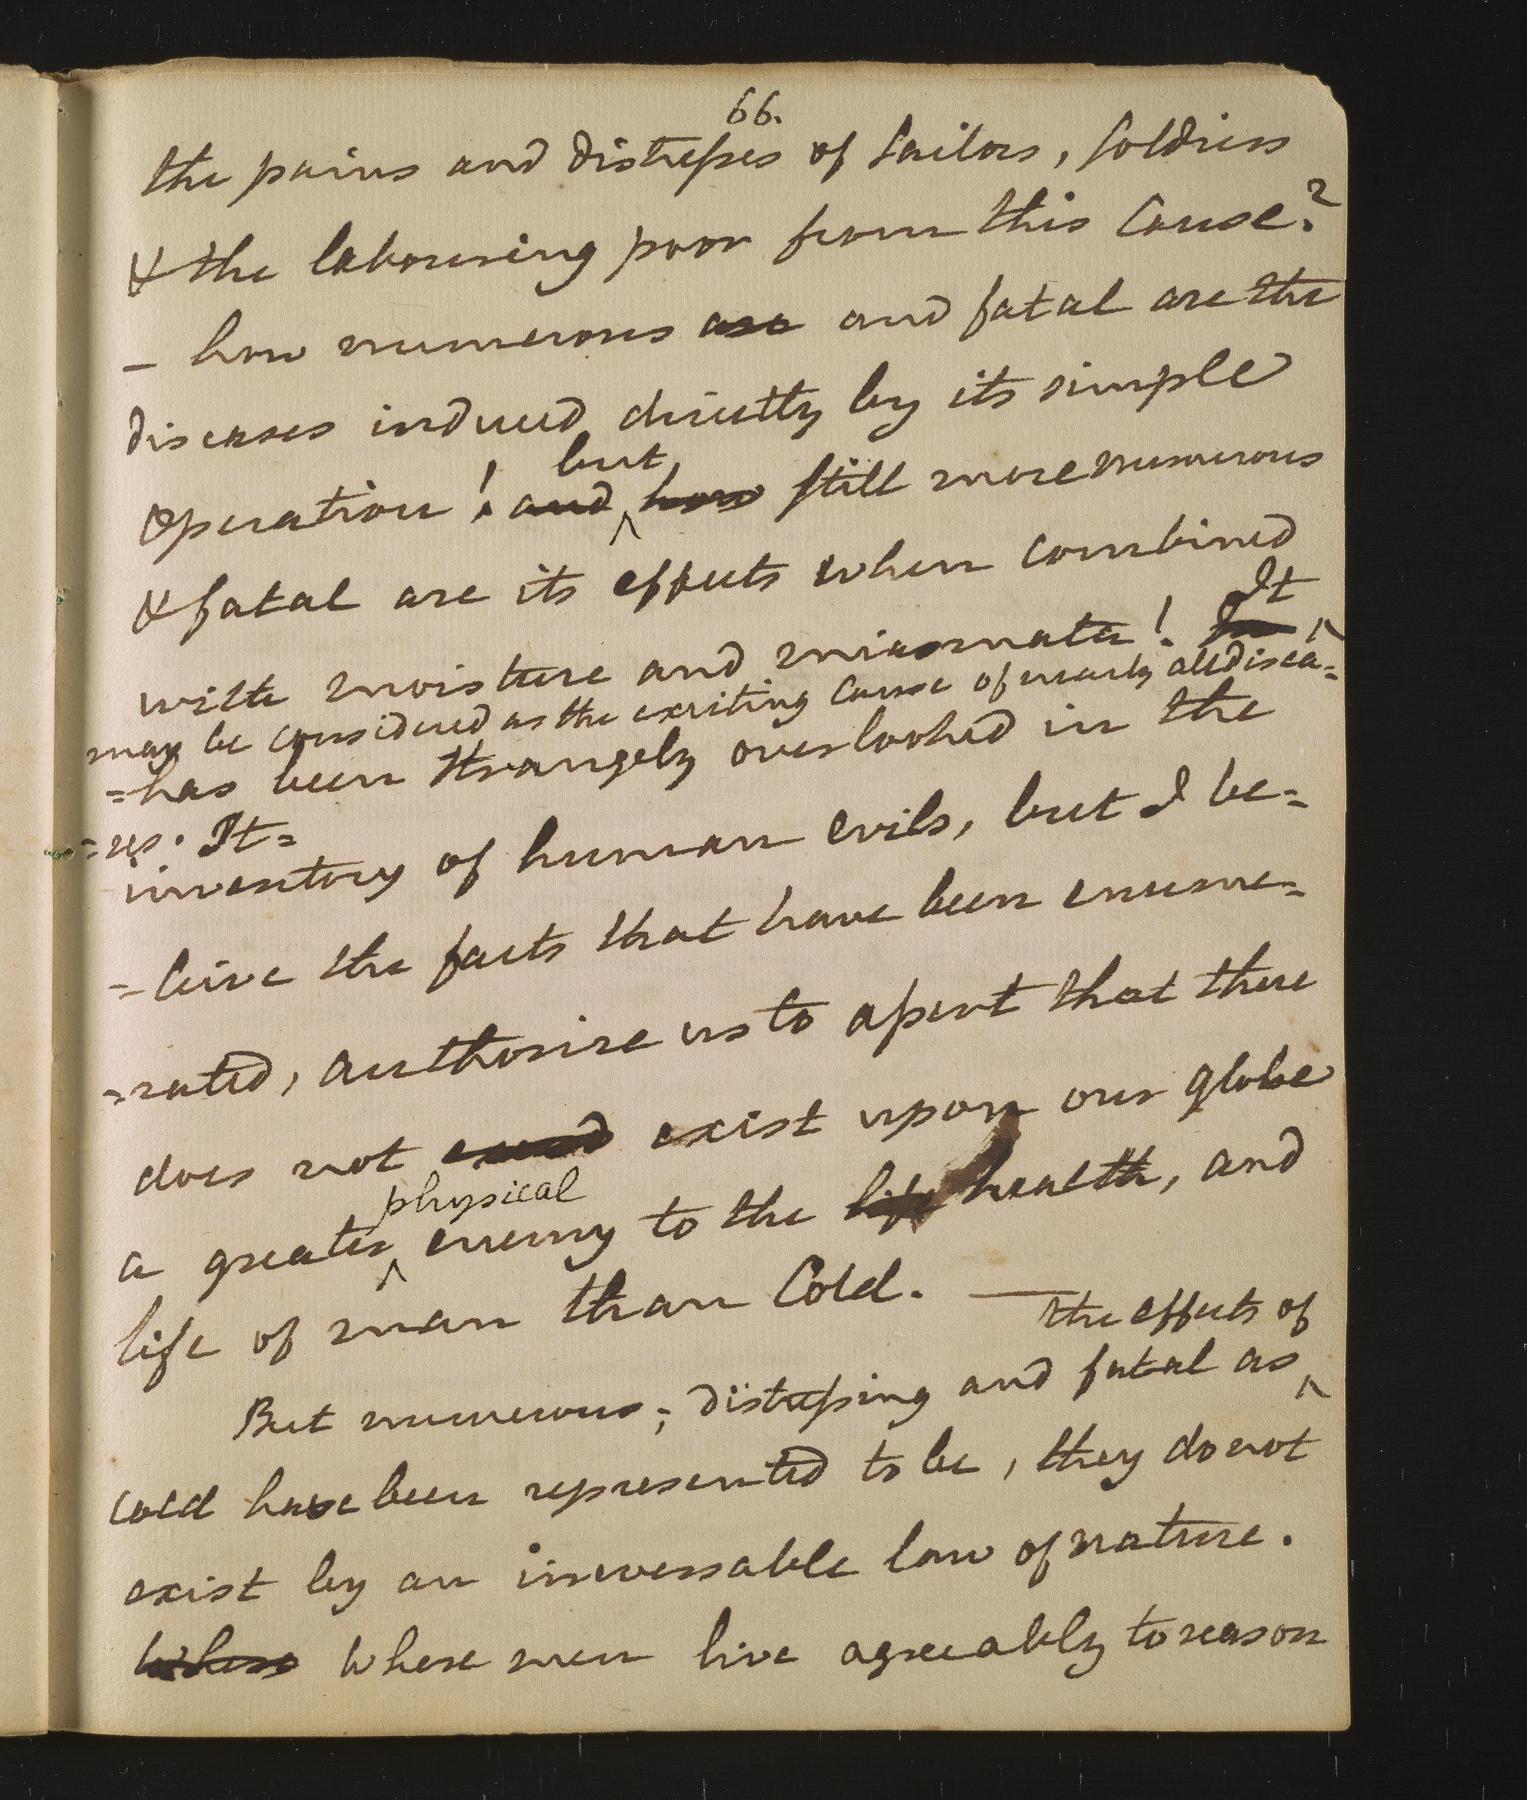 66.
the pains and distresses of sailors, soldiers
& the labouring poor from this Cause?
– how numerous are and fatal are the
diseases induced directly by its simple
but
operation! and ^ how still more numerous
& fatal are its effects when combined
It
with moisture and miasmata! ^
may be considered as the exciting cause of nearly all disea=
=has been strangely overlooked in the
=ses. It=
inventory of human evils, but I be=
=lieve the facts that have been enume=
=rated, authorise us to assert that there
does not exist upon our globe
physical
a greater ^ enemy to the life health, and
life of man than Cold. —
the effects of
But numerous, distressing and fatal as ^
cold have been represented to be, they do not
exist by an inversable law of nature.
Where Where men live agreeably to reason